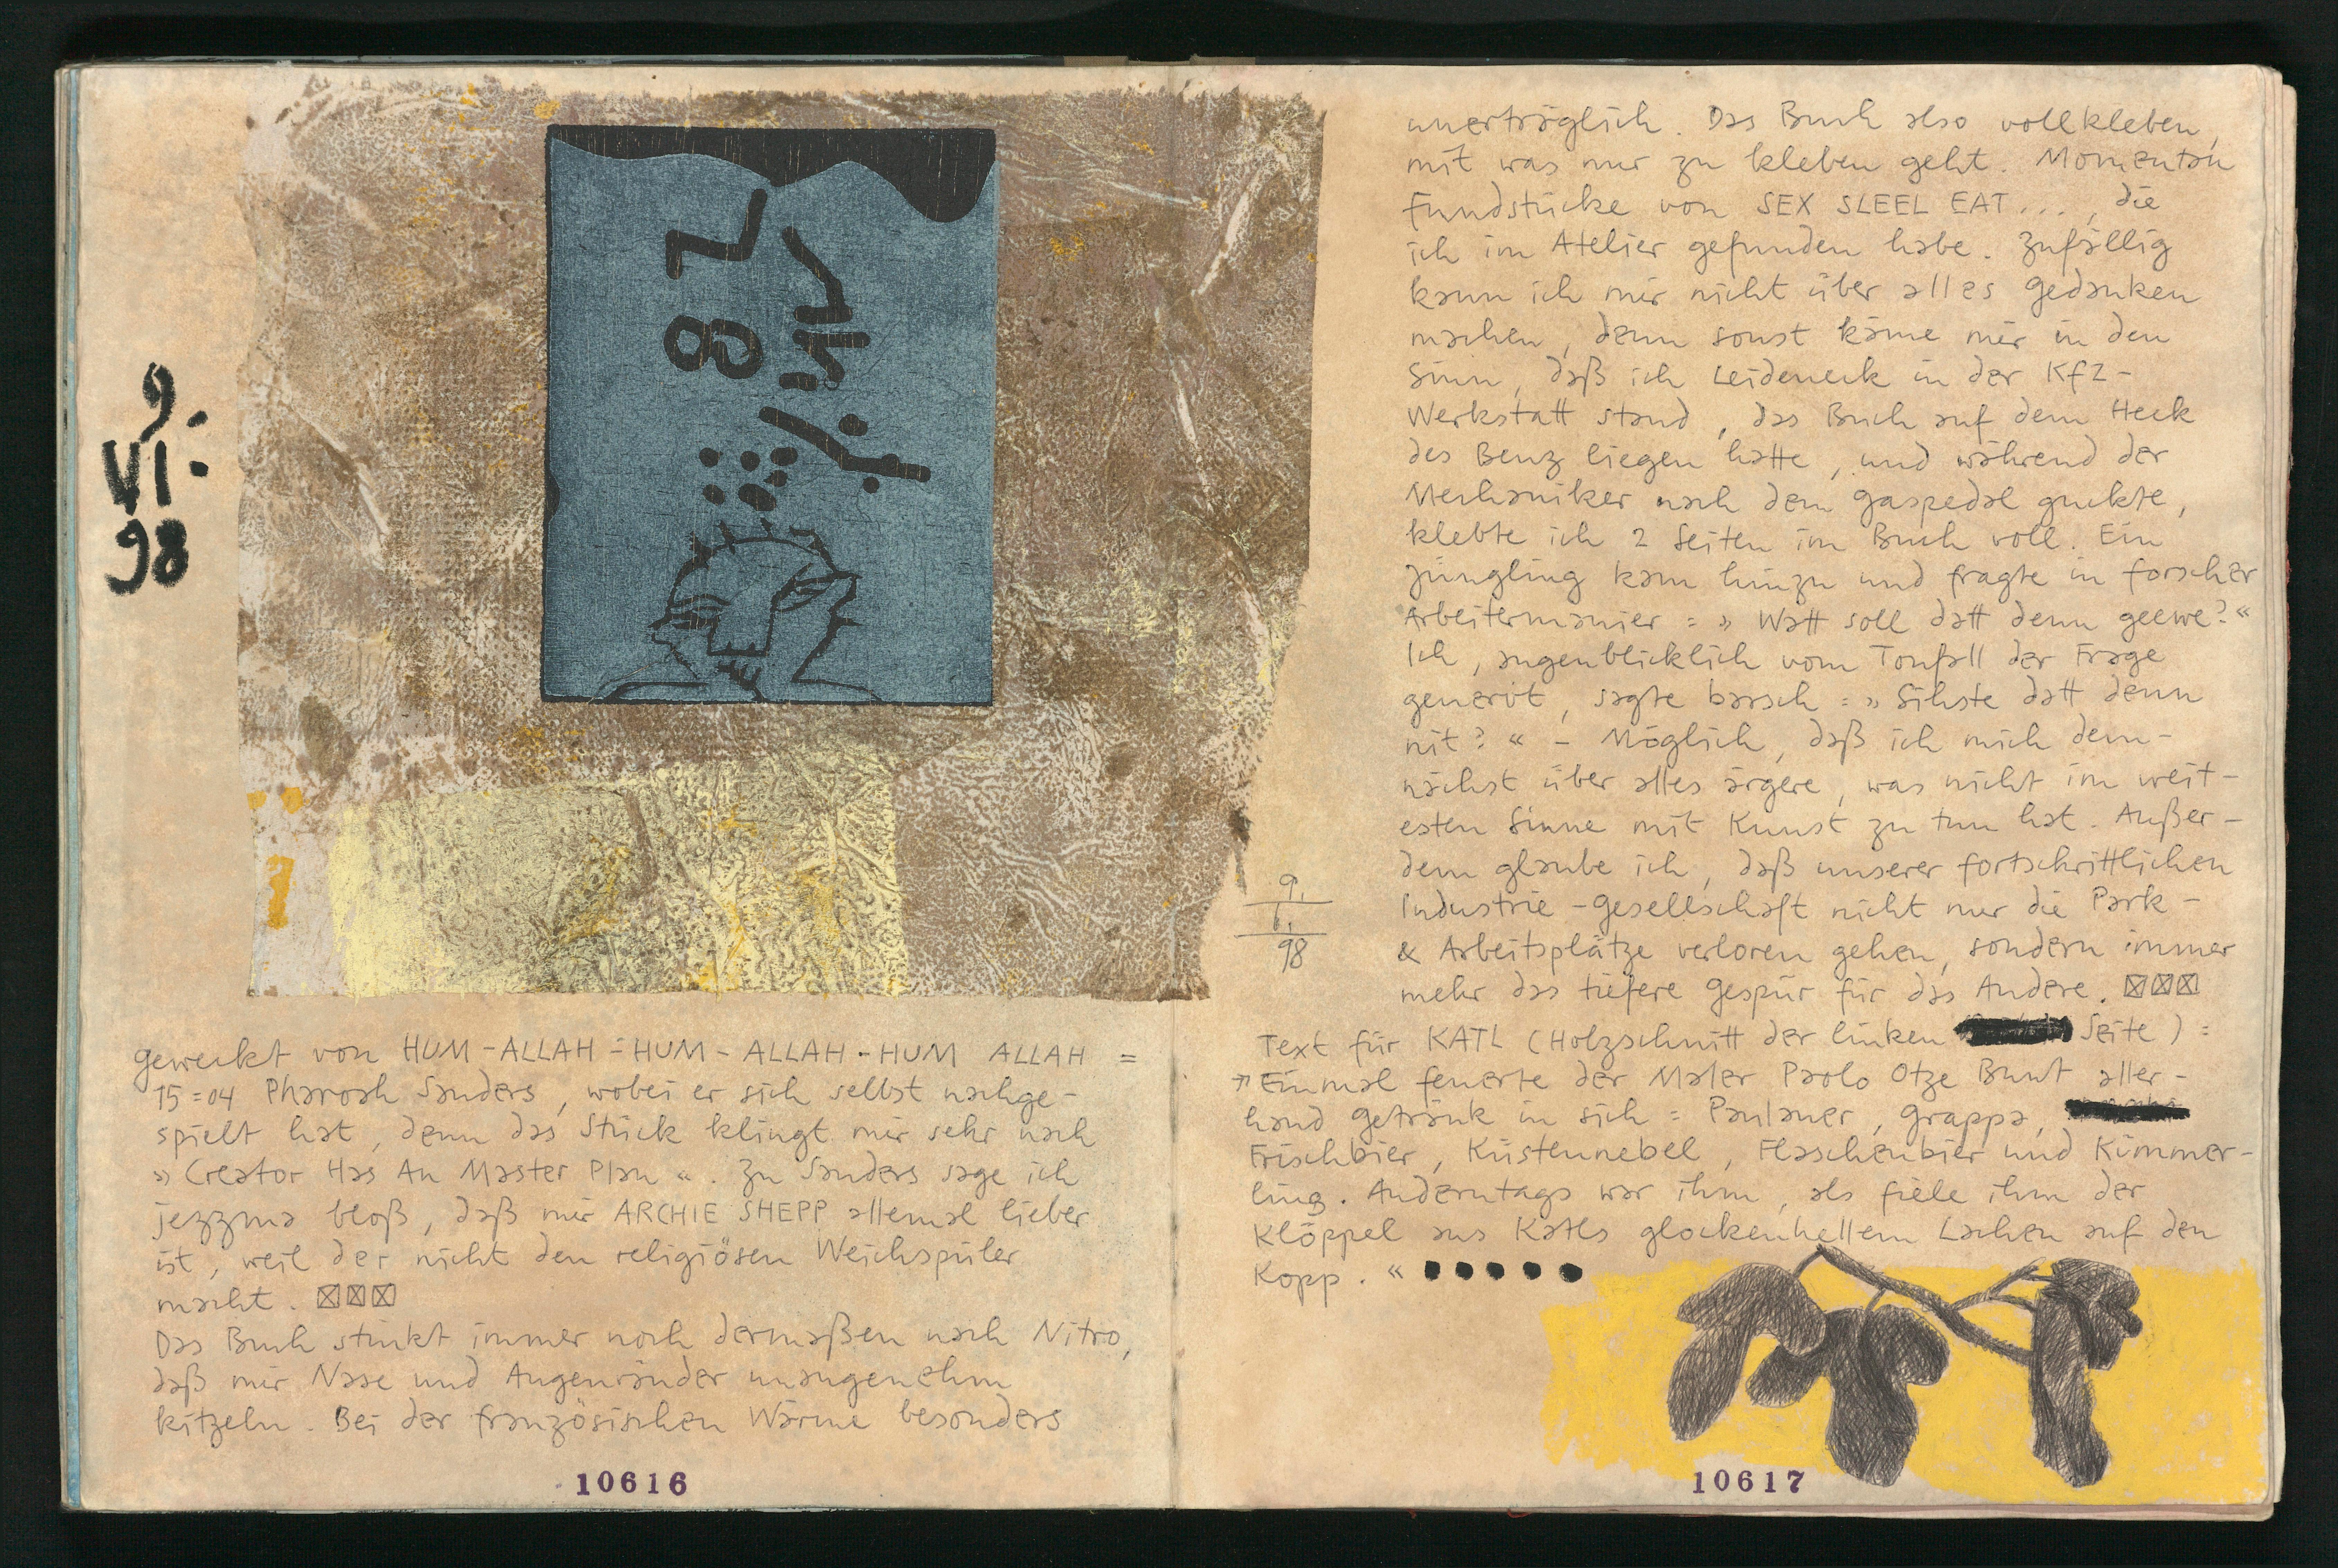 9.
VI.
98
geweckt von HUM-ALLAH-HUM-ALLAH-HUM ALLAH =
15=04 Pharoah Sanders, wobei er sich selbst nachge-
spielt hat, denn das Stück klingt mir sehr nach
»Creator Has An Master Plan«. Zu Sanders sage ich
jezzma bloß, daß mir ARCHIE SHEPP allemal lieber
ist, weil der nicht den religiösen Weichspüler
macht. ☒☒☒
Das Buch stinkt immer noch dermaßen nach Nitro,
daß mir Nase und Augenränder unangenehm
kitzeln. Bei der französischen Wärme besonders
10616
unerträglich. Das Buch also vollkleben,
mit was nur zu kleben geht. Momentan
Fundstücke von SEX SLEEL EAT..., die
ich im Atelier gefunden habe. Zufällig
kann ich mir nicht über alles Gedanken
machen, denn sonst käme mir in den
Sinn, daß ich Leideneck in der Kfz-
Werkstatt stand, das Buch auf dem Heck
des Benz liegen hatte, und während der
Mechaniker nach dem Gaspedal guckte,
klebte ich 2 Seiten im Buch voll. Ein
Jüngling kam hinzu und fragte in forscher
Arbeitermanier = »Watt soll datt denn geewe?«
Ich, augenblicklich vom Tonfall der Frage
genervt, sagte barsch = »Sihste datt denn
nit?« - Möglich, daß ich mich dem-
nächst über alles ärgere, was nicht im weit-
esten Sinne mit Kunst zu tun hat. Außer-
dem glaube ich, daß unserer fortschrittlichen
Industrie-Gesellschaft nicht nur die Park-
& Arbeitsplätze verloren gehen, sondern immer
mehr das tiefere Gespür für das Andere. ☒☒☒
9.
6.
98
Text für KATL (Holzschnitt der linken Seite) =
»Einmal feuerte der Maler Paolo Otze Bunt aller-
hand Getränk in sich = Paulaner, Grappa,
Frischbier, Küstennebel, Flaschenbier und Kümmer-
ling. Anderntags war ihm, als fiele ihm der
Klöppel aus Katls glockenhellem Lachen auf den
Kopp.« ●●●●●
10617